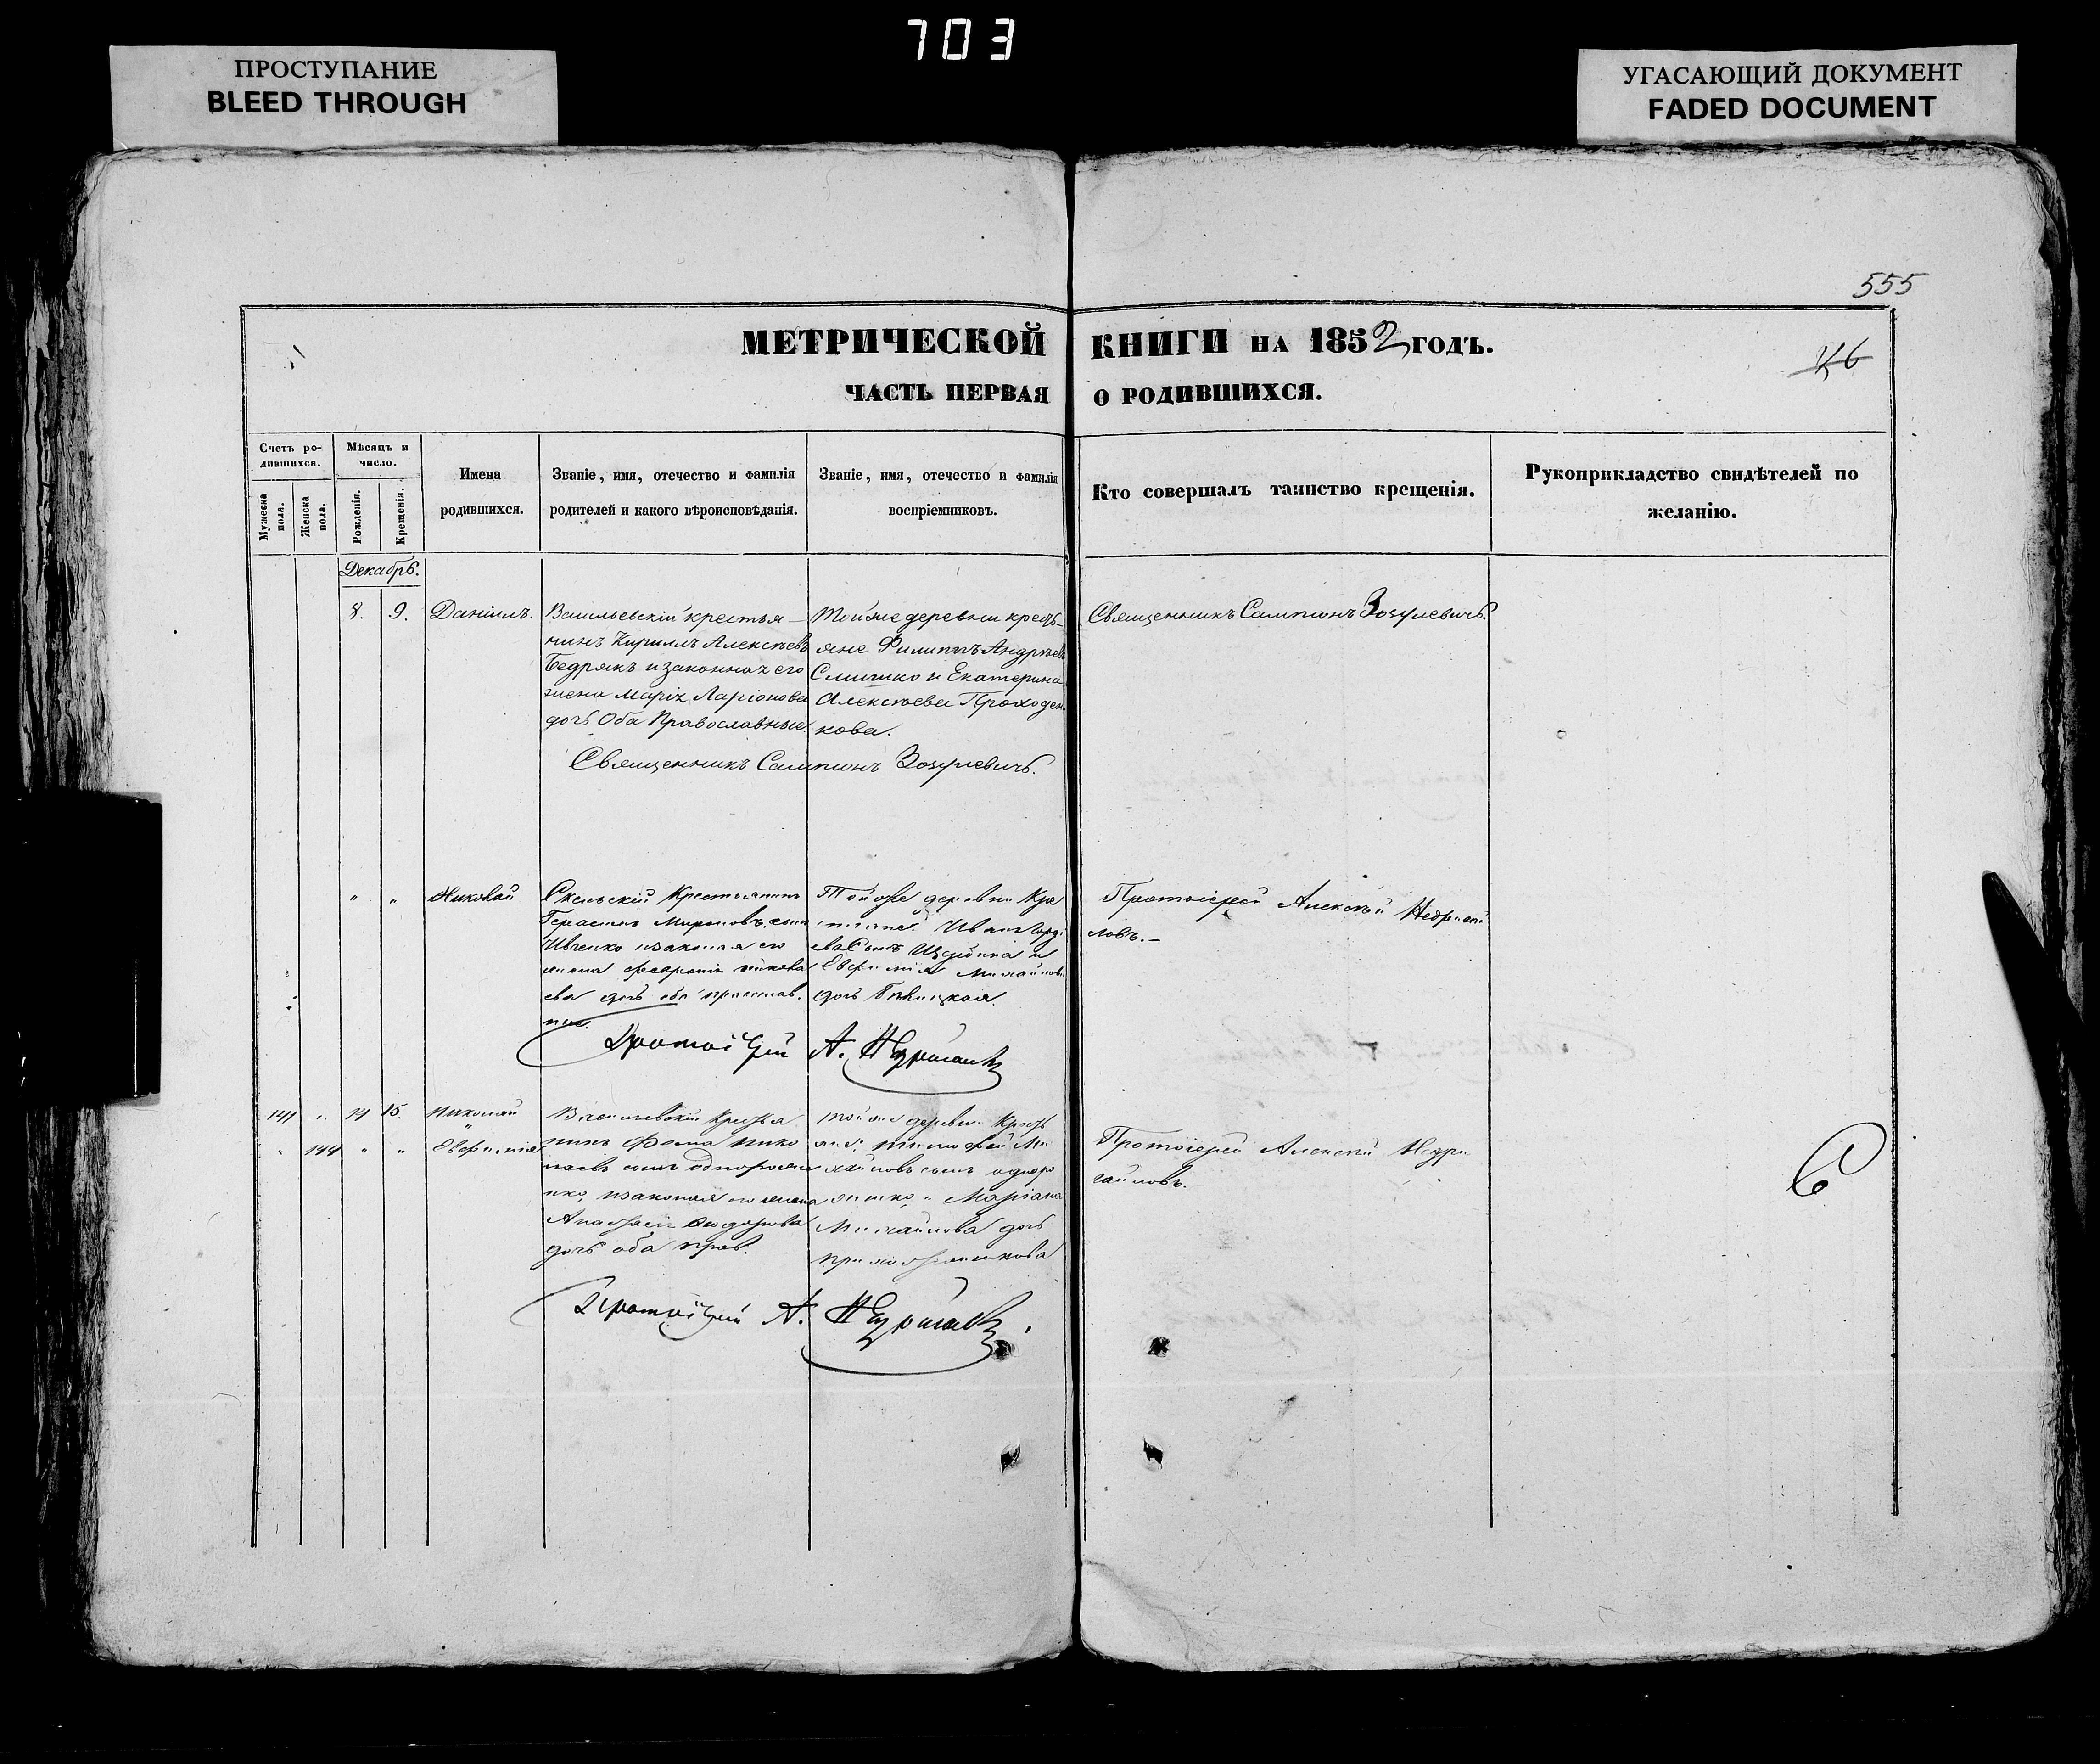 703
ПРОСТУПАНИЕ
BLEED THROUGH
УГАСАЮЩИЙ ДОКУМЕНТ
FADED DOCUMENT
555
МЕТРИЧЕСКОЙ КНИГИ НА 1852 ГОДЪ.
46
ЧАСТЬ ПЕРВАЯ О РОДИВШИХСЯ.
Счетъ ро-
дившихся.
Мужеска
пола.
Женска
пола.
Мѣсяцъ и
число.
Рожденія.
Крещенія.
Имена
родившихся.
Званіе, имя, отечество и фамилія
родителей и какого вѣроисповѣданія.
Званіе, имя, отечество и фамилія
воспріемниковъ.
Кто совершалъ таинство крещенія.
Рукоприкладство свидѣтелей по
желанію.
Декабрь.
8. 9. Даніилъ.
Васильевскій крестья-
нинъ Кириллъ Алексѣевъ
Бедрякъ и законная его
жена Марія Ларіонова
дочь Оба Православные.
Тойже деревни крестъ-
яне Филиппъ Андрѣевъ
Слишко и Екатерина
Алексѣева Проходен-
кова.
Священникъ Сампсонъ Зозулевичъ.
Священникъ Сампсонъ Зозулевичъ.
" " Николай
Скельскій Крестьянинъ
Герасимъ Мироновъ сынъ
Ивченко изаконная его
жена
дочь оба православ.
ные.
Тойже деревни Кре
стьяне Иванъ
сынъ и
Евфимія Михайлова
дочь
Протоіерей Алексѣй
ловъ.-
Протоіерей А.
141 " 14 15. Николай
" 144 " " Евфимія
Васильевскій Крестья
нинъ Фома Нико
лаевъ сынъ Однороже
нко, изаконная его жена
Анастасія Ѳеодорова
дочь оба прав.
тойже деревни Крестъ
яне: Тимофей Ми
хайловъ сынъ одноро
женко, и Маріана
Михайлова дочь
Протоіерей Алексѣй
гайловъ.
Протоіерей А.